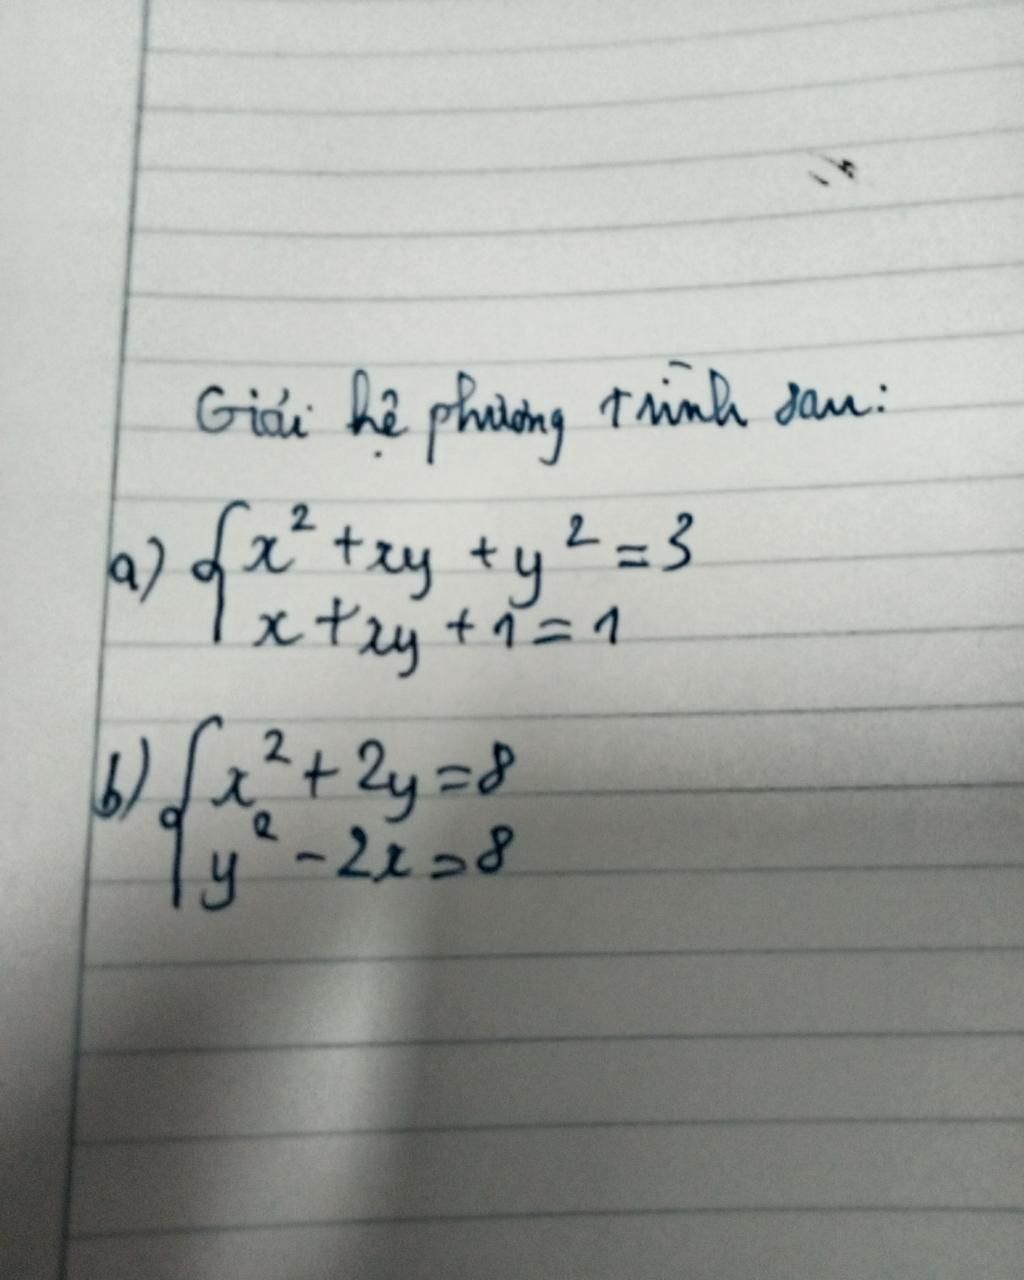 Giải hệ phương trình sau:
a) { x² + xy + y² = 3
x + xy + 1 = 1
b) { x² + 2y = 8
y² - 2x = 8